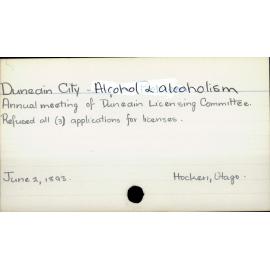 Dunedin City - Alcohol & alcoholism
Annual meeting of Dunedin Licensing Committee.
Refused all (3) applications for licenses.
June 2, 1893. Hocken, Otago.